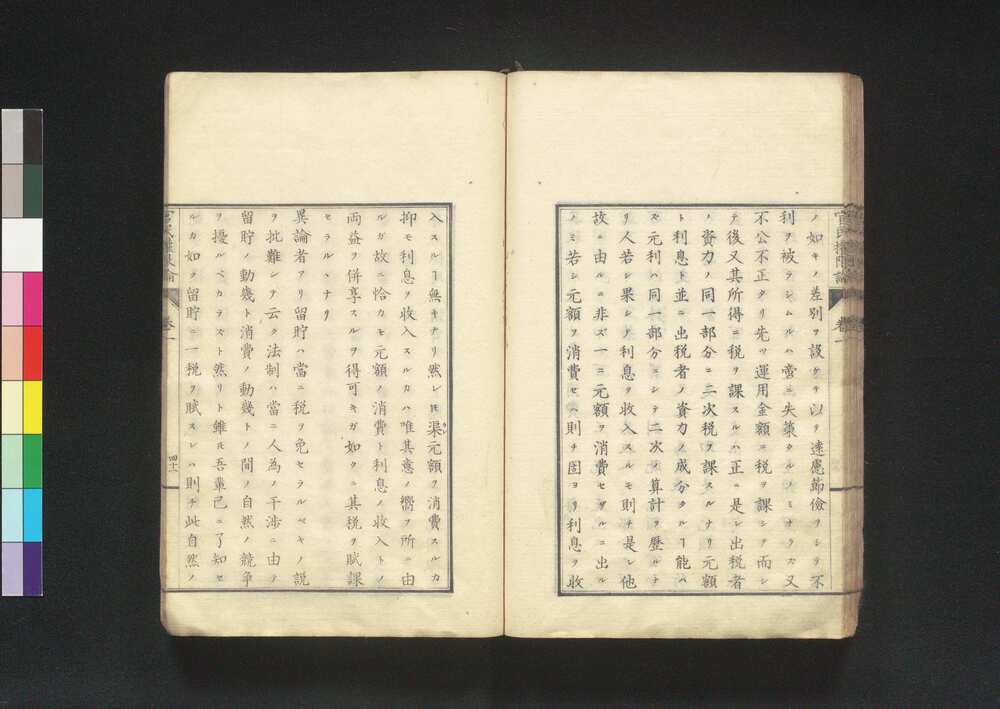 ノ如キノ差別ヲ設ケテ以テ遠慮節儉ヲシテ不
利ヲ被ラシムルハ啻ニ失策タルノミナラズ又
不公不正タリ先ヅ運用金額ニ税ヲ課シ而シ
テ後又其所得ニ税ヲ課スルハ正ニ是レ出税者
ノ資力ノ同一部分ニ二次税ヲ課スルナリ元額
ト利息ト並ニ出税者ノ資力ノ成分タルヿ能ハ
ズ元利ハ同一部分ニシテ二次ノ算計ヲ歴ルナ
リ人若シ果シテ利息ヲ收入スルモ則チ是レ他
故ニ由ルニ非ズ一ニ元額ヲ消費セザルニ出ル
ノミ若シ元額ヲ消費セハ則チ固ヨリ利息ヲ收
入スルヿ無キナリ然レ𪜈渠元額ヲ消費スルカ
抑モ利息ヲ收入スルカハ唯其意ノ嚮フ所ニ由
ルガ故ニ恰カモ元額ノ消費ト利息ノ收入トノ
両益ヲ併享スルヲ得可キガ如クニ其税ヲ賦課
セラルヽナリ
異論者アリ留貯ハ當ニ税ヲ免セラルベキノ説
ヲ批難シテ云ク法制ハ當ニ人為ノ干渉ニ由テ
留貯ノ動幾ト消費ノ動幾トノ間ノ自然ノ競争
ヲ擾ルベカラズト然リト雖モ吾輩己ニ了知セ
ルカ如ク留貯ニ一税ヲ賦スレハ則チ此自然ノ
卷一
四十一